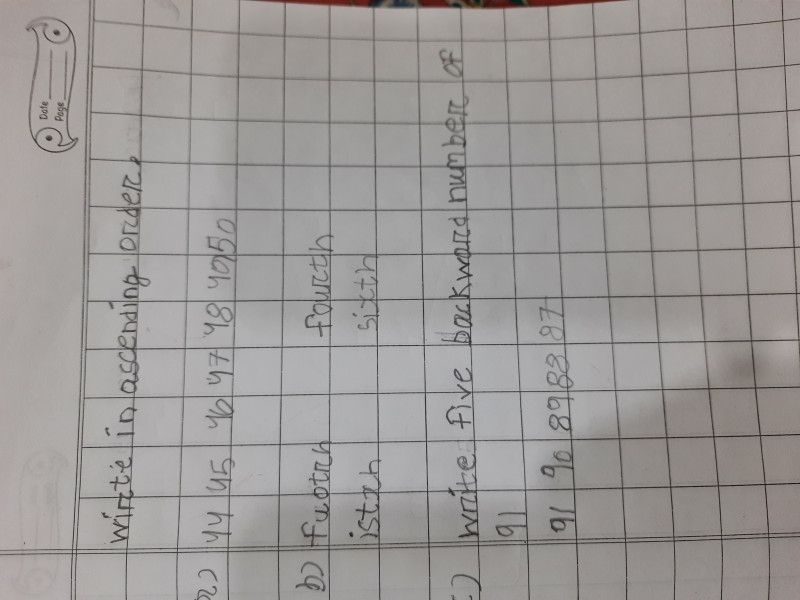 Date
Page
write in ascending order.
a) 44 45 46 47 48 49 50
b) fuotrh fourth
istxh sixth
c) write five backward number of
91
91 90 89 88 87